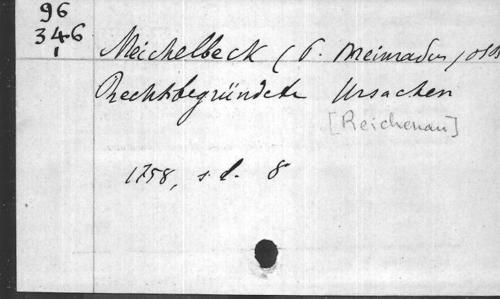 96
346
1
Meichelbeck (P. Meinradus, OSB
Rechtsbegründete Ursachen
[Reichenau]
1758, s. l. 8°